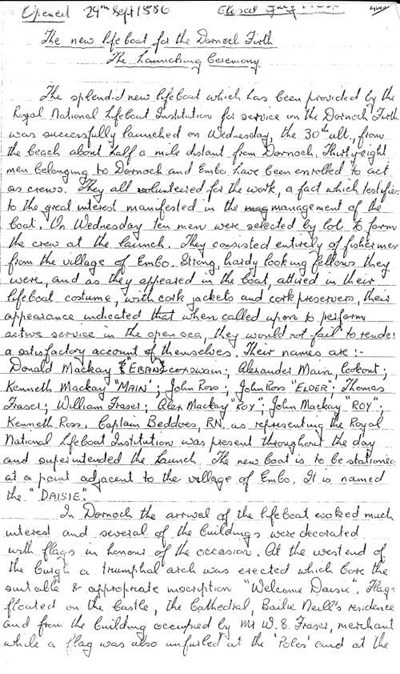 Opened 29th Sept 1886 Closed
The new lifeboat for the Dornoch Firth
The Launching Ceremony
The splendid new lifeboat which has been provided by the
Royal National Lifeboat Institution for service on the Dornoch Firth
was successfully launched on Wednesday, the 30th ult, from
the beach about half a mile distant from Dornoch. Thirty eight
men belonging to Dornoch and Embo have been enrolled to act
as crews. They all volunteered for the work, a fact which testifies
to the great interest manifested in the management of the
boat. On Wednesday ten men were selected by lot to form
the crew at the launch. They consisted entirely of fishermen
from the village of Embo. Strong, hardy looking fellows they
were, and as they appeared in the boat, attired in their
lifeboat costume, with cork jackets and cork preservers, their
appearance indicated that when called upon to perform
active service in the open sea, they would not fail to render
a satisfactory account of themselves. Their names are :-
Donald Mackay "EBAN" coxswain; Alexander Main, lookout;
Kenneth Mackay "MAIN"; John Ross; John Ross "ELDER"; Thomas
Fraser; William Fraser; Alex Mackay "ROY"; John Mackay "ROY";
Kenneth Ross. Captain Beddoes, RN. as representing the Royal
National Lifeboat Institution was present throughout the day
and superintended the launch. The new boat is to be stationed
at a point adjacent to the village of Embo. It is named
the "DAISIE".
In Dornoch the arrival of the lifeboat evoked much
interest and several of the buildings were decorated
with flags in honour of the occasion. At the west end of
the burgh a triumphal arch was erected which bore the
suitable & appropriate inscription "Welcome Daisie". Flags
floated on the Castle, the Cathedral, Bailie Neill's residence
and from the building occupied by Mr W. S. Fraser, merchant
while a flag was also unfurled at the 'Poles' and at the